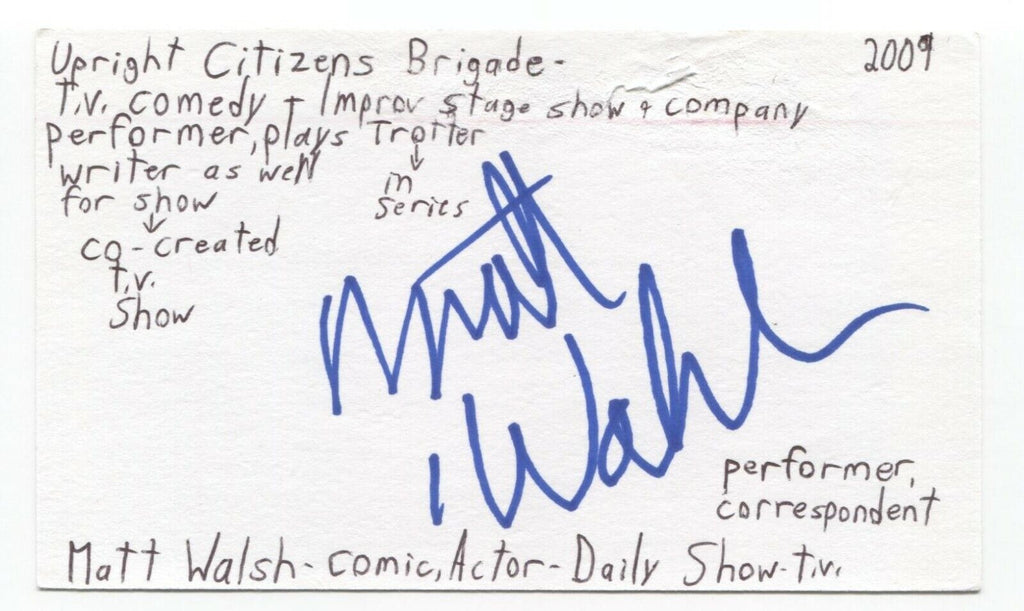 Upright Citizens Brigade- 2009
T.V. comedy + Improv stage show + company
performer, plays Trotter
writer as well
in
for show
series
co-created
T.V.
Show
Matt
Walsh
performer,
correspondent
Matt Walsh-comic, Actor-Daily Show-T.V.